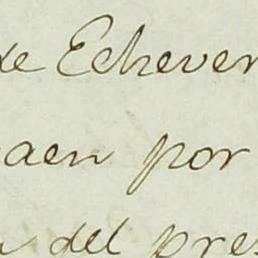 de Echever
aen por
del pres